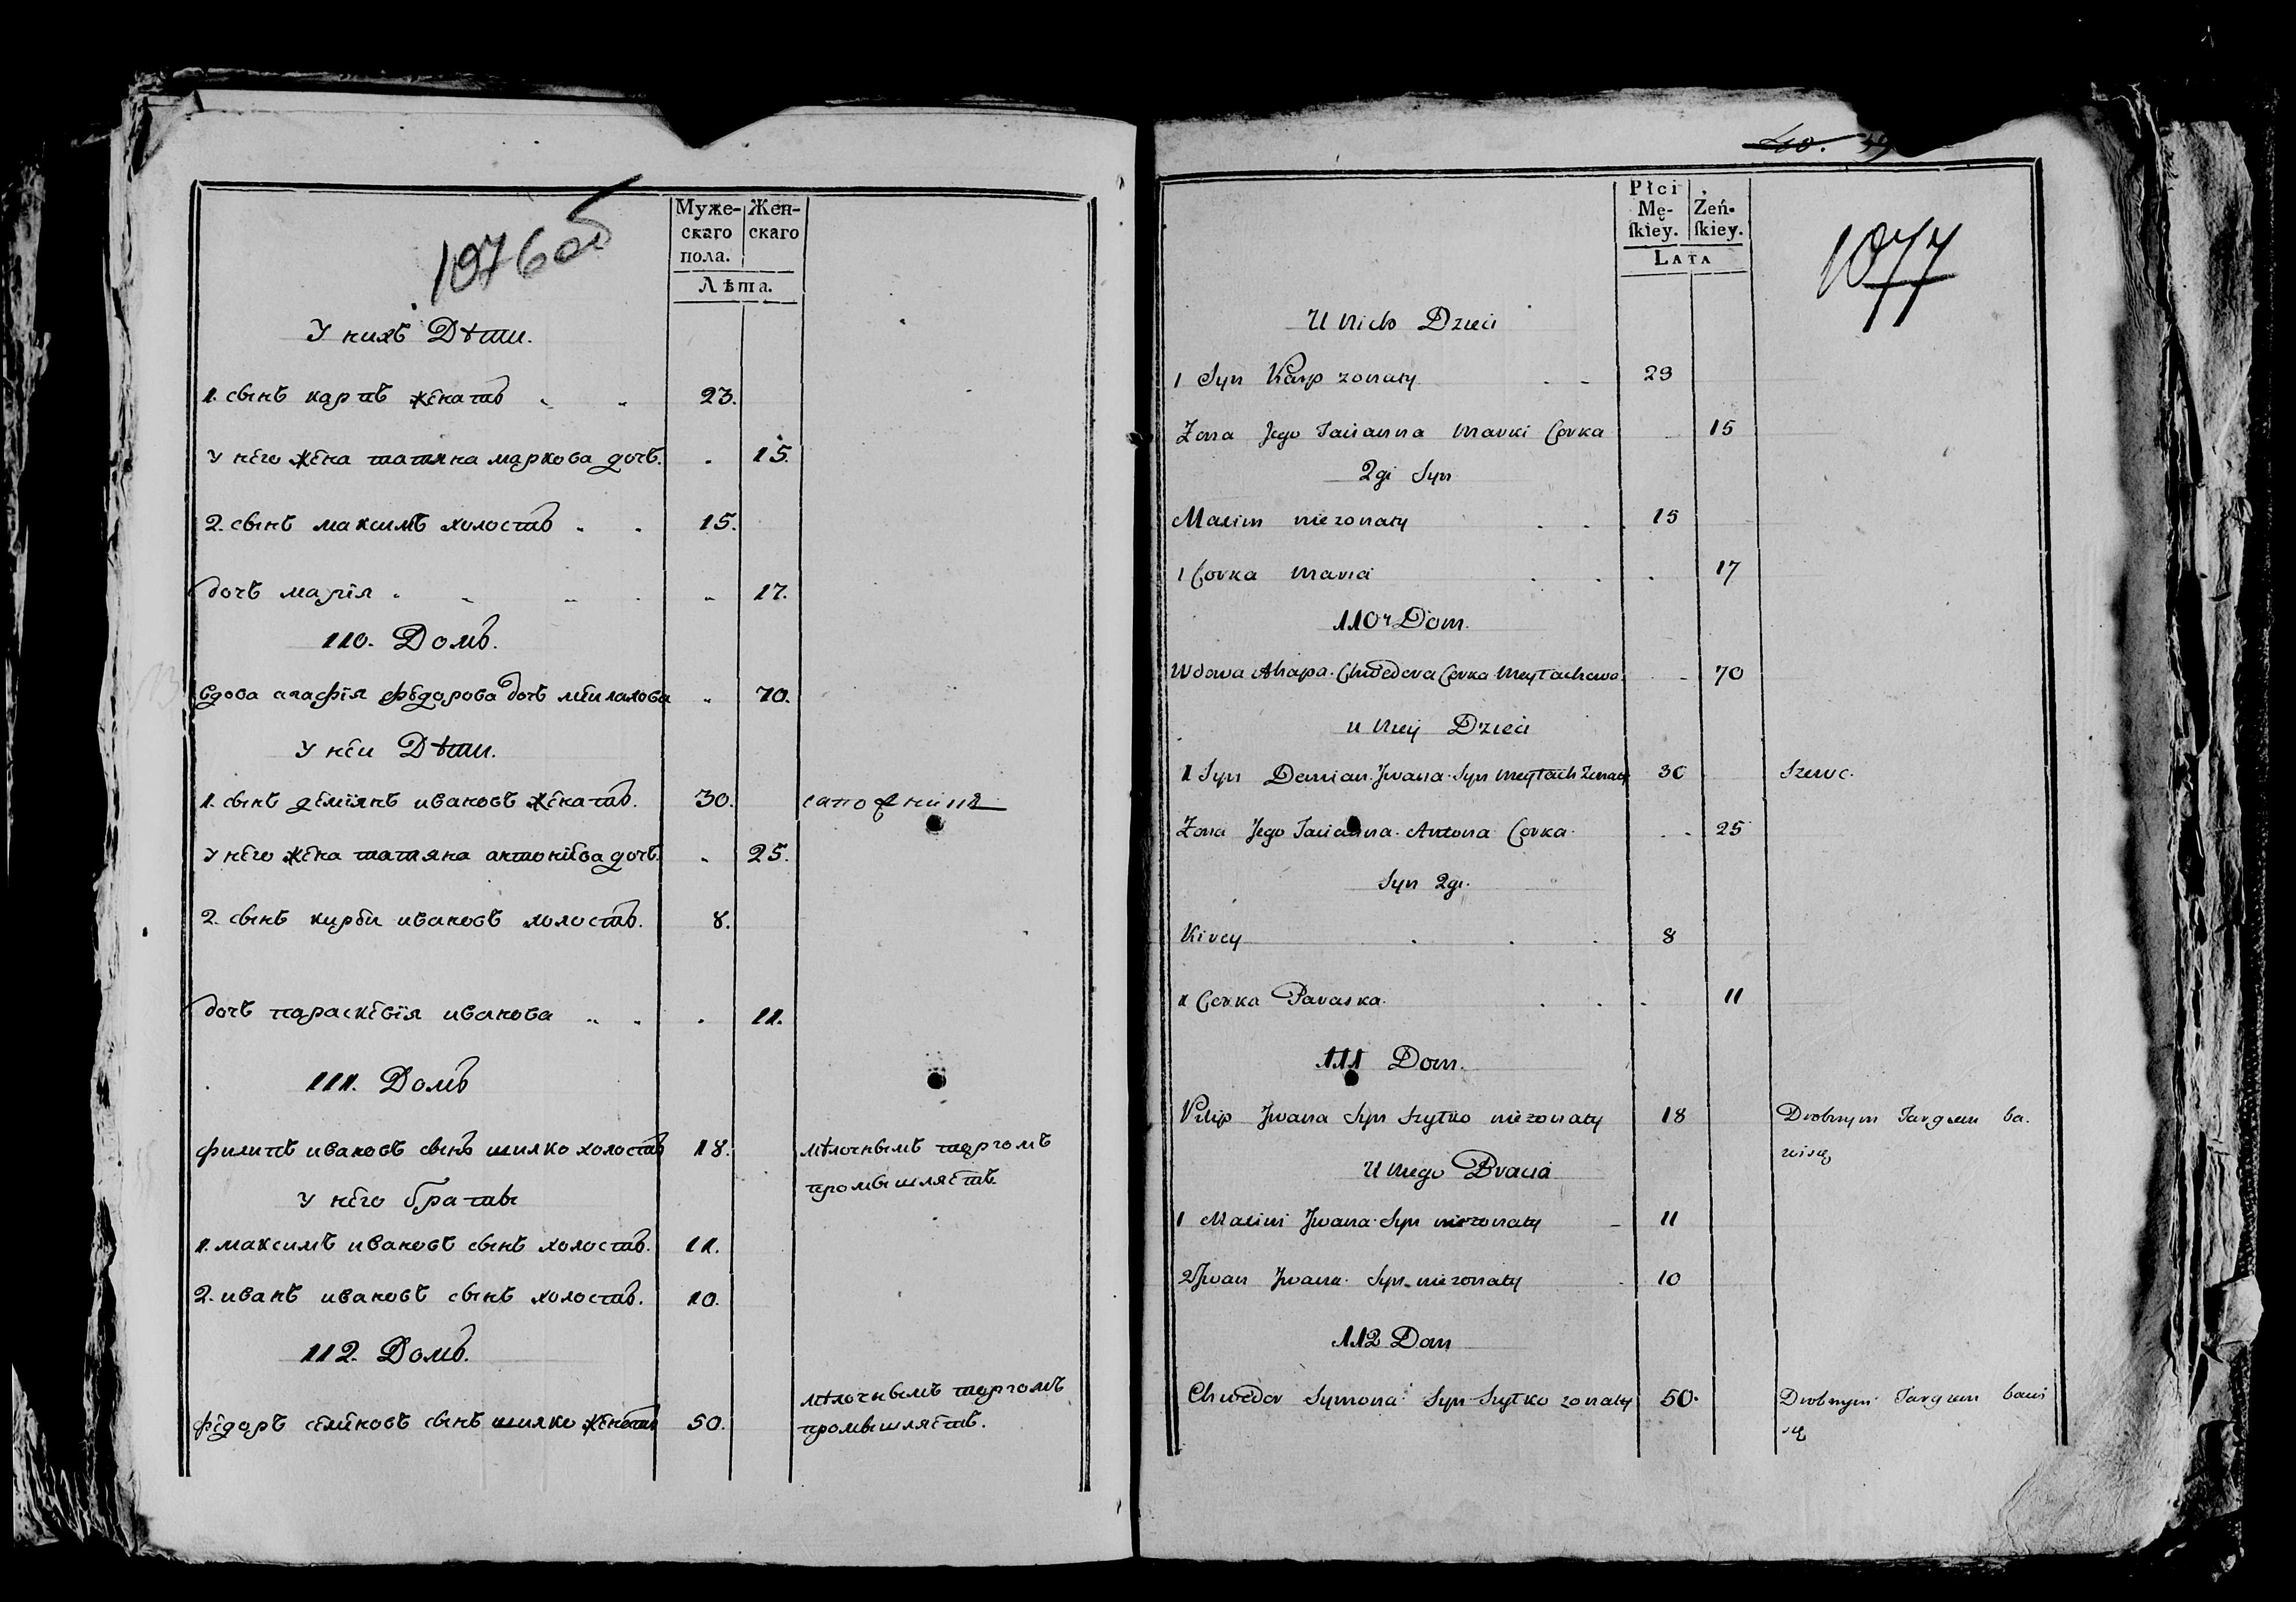 1076 об
Муже- Жен-
скаго скаго
пола.
Лѣта.
У нихъ Дѣти.
1. сынъ карпъ жөнатъ 23.
У него жена татяна маркова дочь. 15.
2. сынъ максимъ холостъ 15.
дочь марія 17.
110. Домъ.
вдова агафія федорова дочь мейлахова 70.
У неи Дѣти.
1. сынъ деміянъ ивановъ женатъ. 30. сапожникъ
У него жена татяна антонѣва дочь. 25.
2. сынъ кирѣи ивановъ холостъ. 8.
дочь параскевія иванова 11.
111. Домъ
филипъ ивановъ сынъ шилко холостъ 18. мѣлочнымъ торгомъ
промышляетъ.
У него братъы
1. максимъ ивановъ сынъ холостъ. 11.
2. иванъ ивановъ сынъ холостъ. 10.
112. Домъ.
мѣлочнымъ торгомъ
фідоръ семеновъ сынъ шилко женатъ 50. промышляетъ.
40. 39
Płci Żeń-
Mę- ſkiey.
ſkiey.
LATA
1077
U Nich Dzieci
1 Syn Karp zonaty 23
Zona Jego Tacianna Marki Corka 15
2gi Syn
Maxim niezonaty 15
1 Corka Maria 17
110 Dom.
Wdowa Ahapa Chwedora Corka Meytachowa 70
u Niey Dzieci
1 Syn Demian Jwana Syn Meytach Zonaty 30 Szewc.
Zona Jego Tacianna Antona Corka 25
Syn 2gi.
Kirey 8
1 Corka Paraska. 11
111 Dom.
Pilip Jwana Syn Szytko niezonaty 18 Drobnym Targiem ba.
wi się
U Niego Bracia
1 Maxim Jwana Syn niezonaty 11
2 Jwan Jwana Syn niezonaty 10
112 Dom
Chwedor Symona Syn Szytko zonaty 50. Drobnym Targiem bawi
się